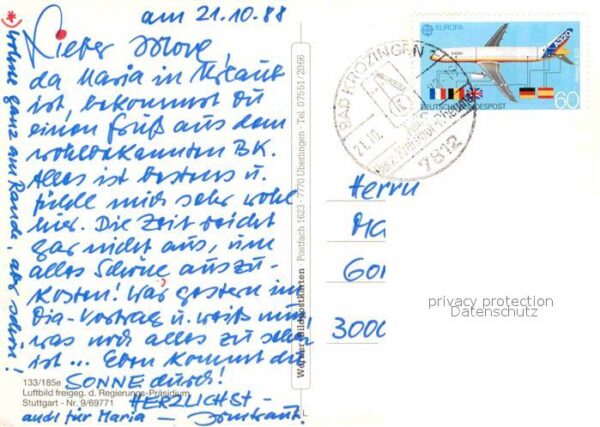 am 21.10.88
Lieber
da Maria in Urlaub
ist, bekommst du
einen Gruß aus dem
wohlbekannten BK.
Alles ist bestens u.
fühle mich sehr wohl
hier. Die Zeit reicht
gar nicht aus, um
alles Schöne auszu-
kosten! War gestern im
Dia-Vortrag u. weiß nun,
was noch alles zu sehen
ist... Eben kommt die
SONNE durch!
HERZLICHST -
auch für Maria -
* wohne ganz am Rande, aber schön!
133/185e
Luftbild freigeg. d. Regierungs-Präsidium
Stuttgart - Nr. 9/69771
Werner Bildpostkarten · Postfach 1623 · 7770 Überlingen · Tel. 07551/2066
BAD KROZINGEN
21.10.
7812
EUROPA
A320
DEUTSCHE BUNDESPOST
60
Herrn
MA
GOR
3000
privacy protection
Datenschutz